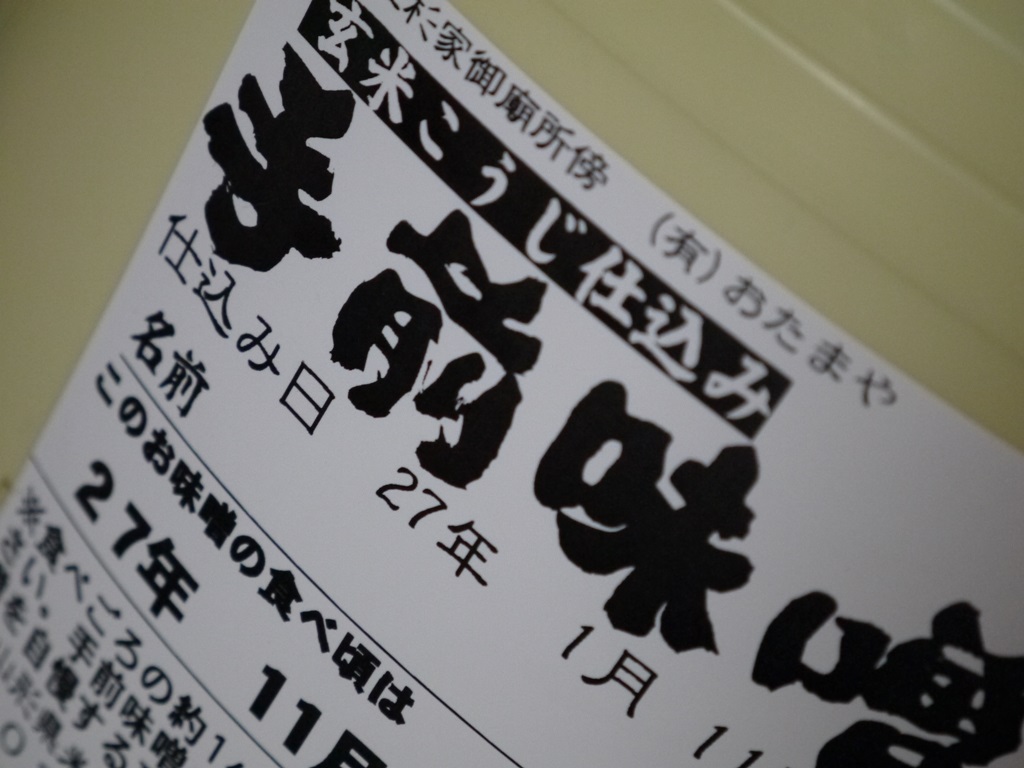 杉家御廟所傍 (有)おたまや
玄米こうじ仕込み
手前味噌
仕込み日 27年 1月 11
名前
このお味噌の食べ頃は
27年 11月
※食べごろの約1
さい。手前味噌
を自慢する
山形県米